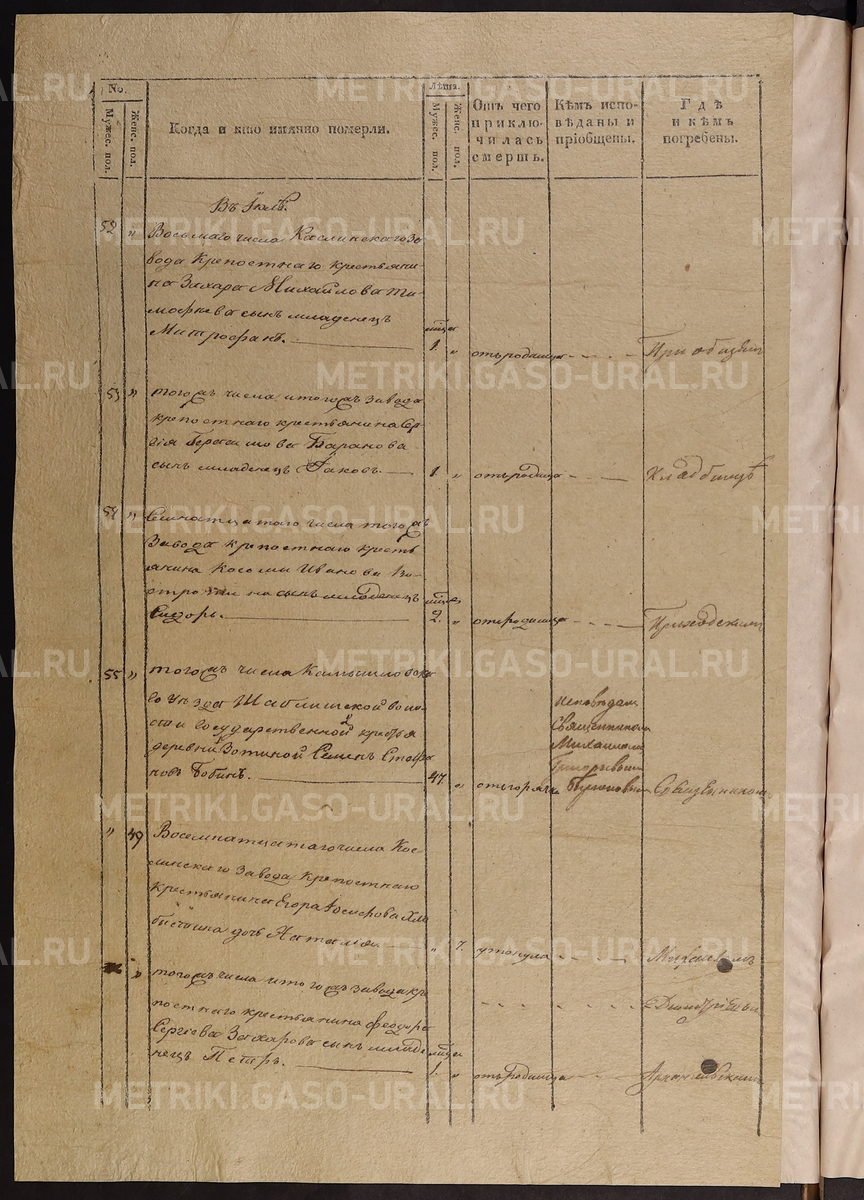 No.
Мужес. пол.
Женс. пол.
Когда и кто имянно померли.
Лѣта.
Мужес. пол.
Женс. пол.
Отъ чего
приклю-
чилась
смерть.
Кѣмъ испо-
вѣданы и
пріобщены.
Гдѣ
и кѣмъ
погребены.
Въ Іюлѣ.
52 " Восьмаго числа Каслинскаго За-
вода крепостнаго крестьяни-
на Захара Михайлова Ти-
мофеева сынъ младенецъ
Митрофанъ.
1. " отъ родимца При общемъ
53 " тогожъ числа итогожъ завода
крепостнаго крестьянина Сер-
гія Герасимова Баранова
сынъ младенецъ Іаковъ.
1 " отъ родимца кладбищѣ
54 " Семнатцатаго числа тогожъ
Завода крепостнаго кресть
янина Косьмы Иванова
на сынъ младенецъ
Сидоръ.
2. " отъ родимца Приходскимъ
55 " тогожъ числа Камышловска
го уѣзда воло-
сти Государственной крестья
деревни Зотиной Семенъ Стефа
новъ Бобинъ.
47. " отъ горячки
исповѣданъ
Священникомъ
Михаиломъ
Священникомъ
" 49 Восемнатцатаго числа Кас-
линскаго завода крепостнаго
крестьянина Егора Хле
бисткина дочь Наталья
" 7. утонула Михаиломъ
" тогожъ числа итогожъ завода кре
постнаго крестьянина Федора
Сергіева Захарова сынъ младе
нецъ Петръ.
1. " отъ родимца
Димитріевымъ
Архангельскимъ
METRIKI.GASO-URAL.RU